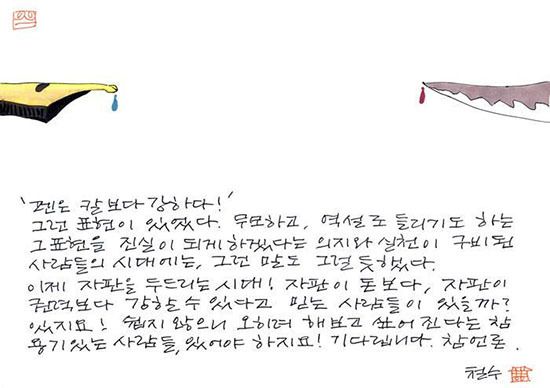 '펜은 칼보다 강하다!'
그런 표현이 있었다. 무모하고, 역설로 들리기도 하는
그 표현을 진실이 되게 하겠다는 의지와 실천이 구비된
사람들의 시대에는, 그런 말도 그럴 듯했다.
이제 자판을 두드리는 시대! 자판이 돈보다, 자판이
권력보다 강할 수 있다고 믿는 사람들이 있을까?
있지요! 쉽지 않으니 오히려 해보고 싶어진다는 참
용기있는 사람들, 있어야 하지요! 기다립니다. 참언론.
철수